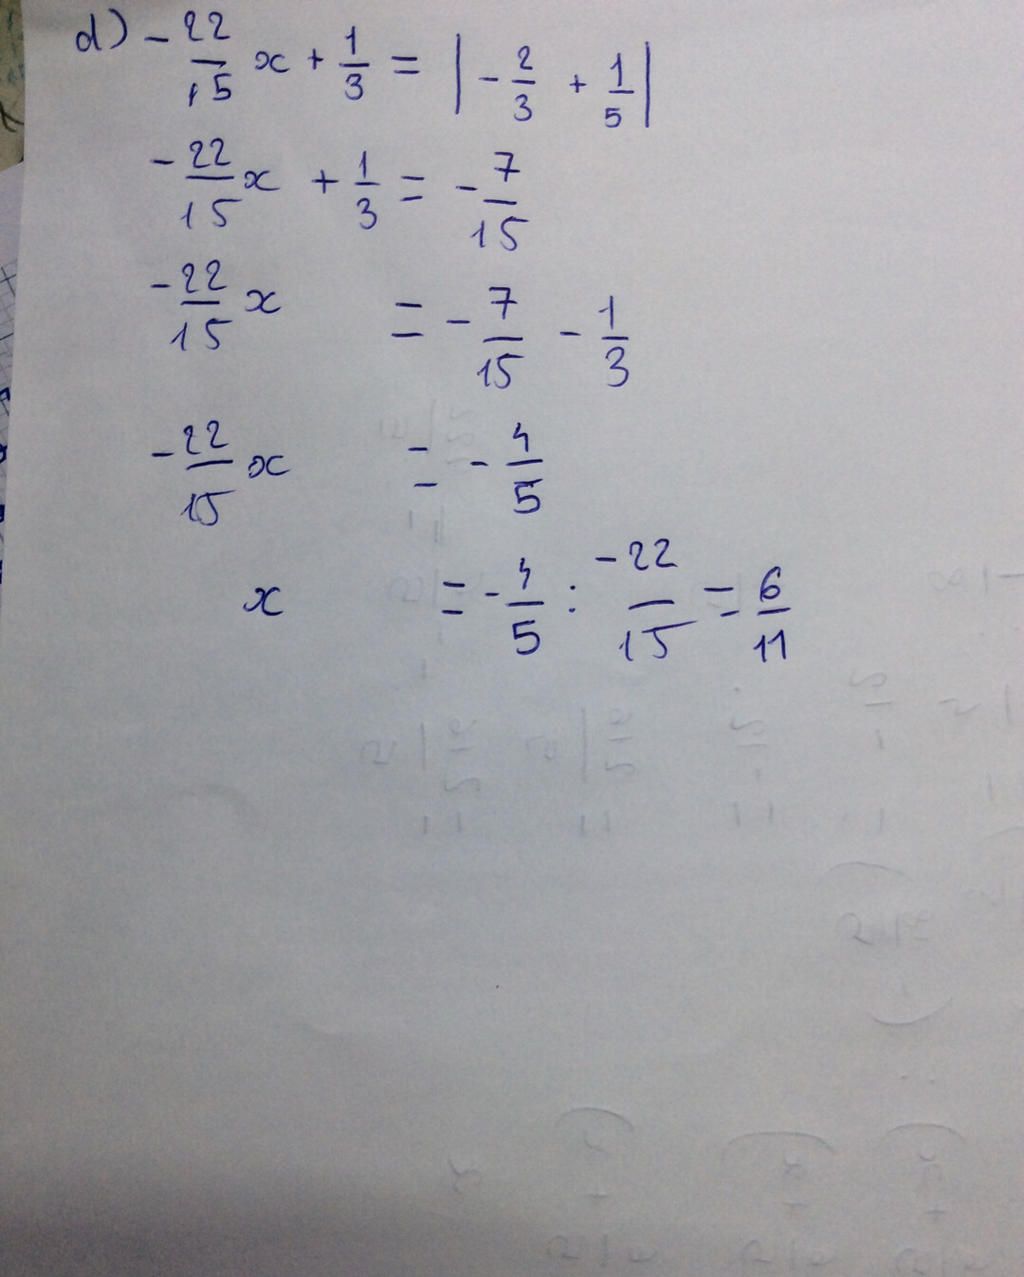 d) -22/15 x + 1/3 = |-2/3 + 1/5|
-22/15 x + 1/3 = -7/15
-22/15 x = -7/15 - 1/3
-22/15 x = -4/5
x = -4/5 : -22/15 = 6/11